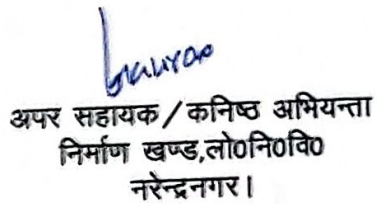 अपर सहायक / कनिष्ठ अभियन्ता
निर्माण खण्ड,लो०नि०वि०
नरेन्द्रनगर।